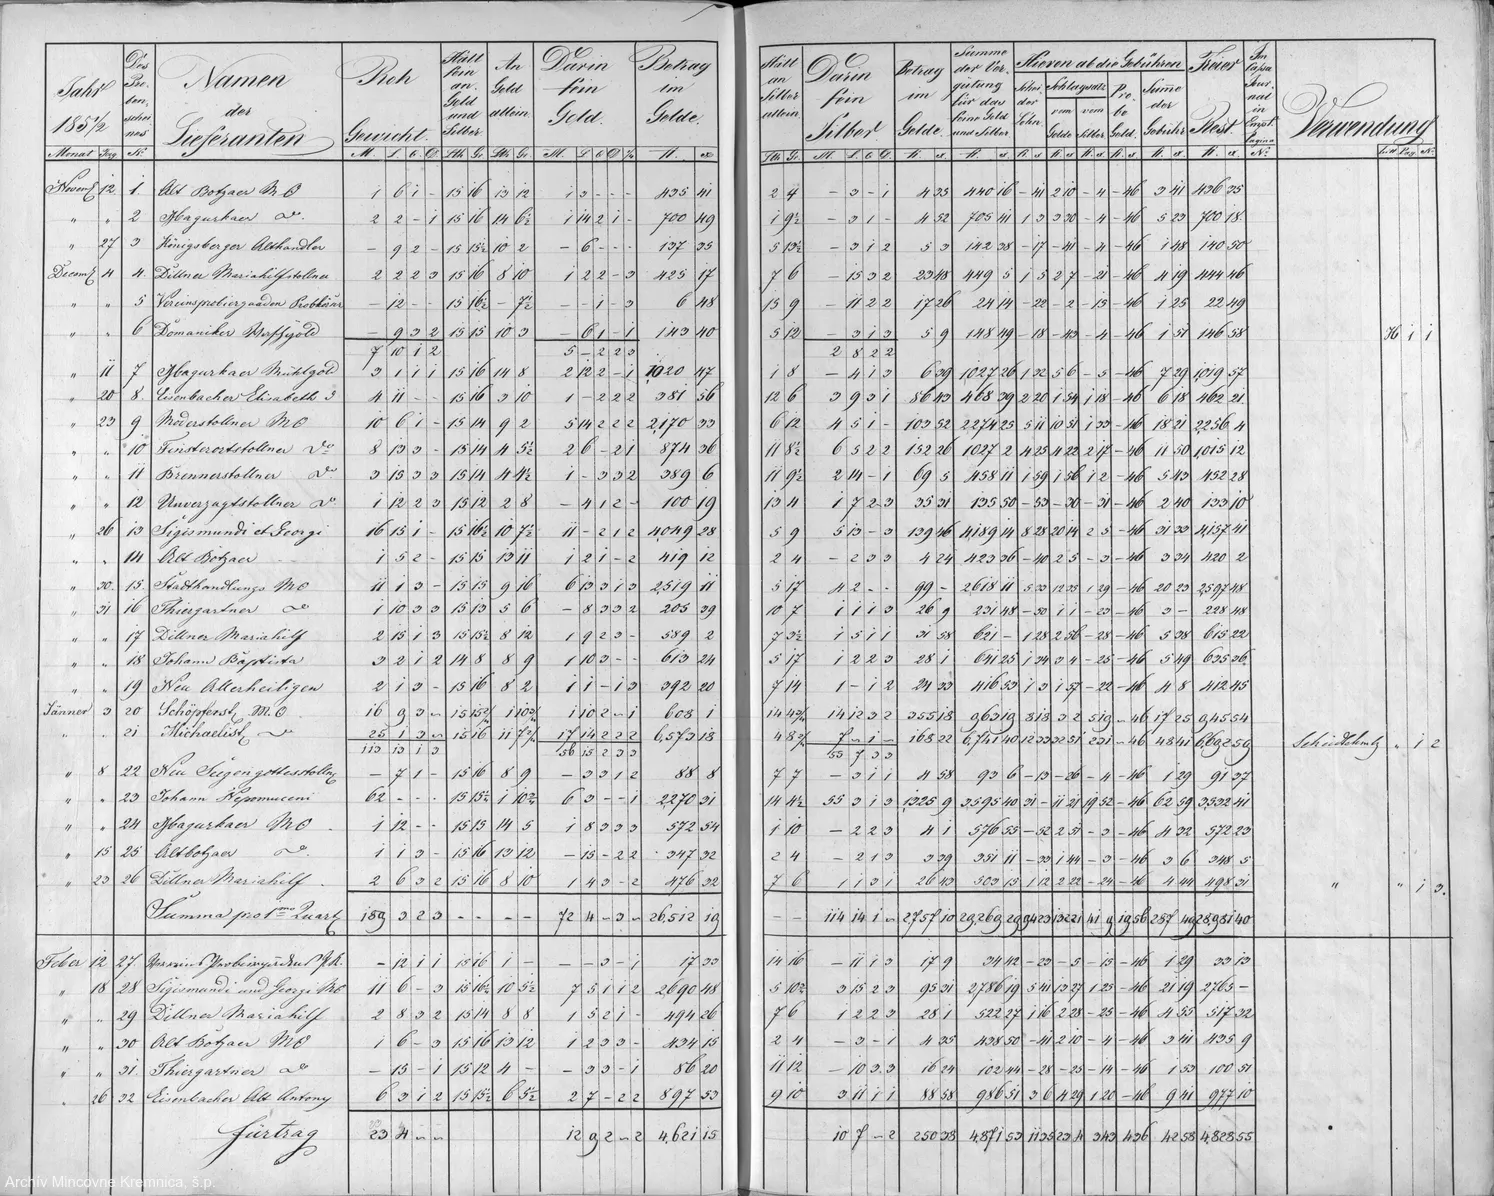 Jahr 185½ | Des Probenscheines | Namen der Lieferanten | Roh Gewicht. | Hält fein an Gold und Silber | An Gold allein. | Darin fein Gold. | Betrag im Gelde. | Hält an Silber allein | Darin fein Silber | Betrag im Gelde. | Summe der Vergütung für das feine Gold und Silber | Hievon ab die Gebühren | Freier Rest. | Verwendung
Scheider Lohn | Schlagsatz vom Golde | vom Silber | Probe Gold. | Sume der Gebühr
Monat | Tag | N: | M. | L | Q | D | Kar | Gr | Kar | Gr | M. | L | Q | D | fl. | x
Novemb | 12 | 1. | Alt Botzaer MO | 1 6 1 - | 15 16 | 13 12 | 1 3 - - | 435 41 | 2 4 | - 3 - 1 | 4 35 | 440 16 | - 41 | 2 10 | - 4 | - 46 | 3 41 | 436 35
" | " | 2 | Magurkaer do. | 2 2 - 1 | 15 16 | 14 6½ | 1 14 2 1 - | 700 49 | 1 9½ | - 3 1 - | 4 52 | 705 41 | 1 3 | 3 30 | - 4 | - 46 | 5 23 | 700 18
" | 27 | 3 | Königsberger Althandler | - 9 2 - | 15 15½ | 10 2 | - 6 - - - | 137 35 | 5 13½ | - 3 1 2 | 5 3 | 142 38 | - 17 | - 41 | - 4 | - 46 | 1 48 | 140 50
Decemb | 4 | 4. | Dillner Mariahilfstollner | 2 2 2 3 | 15 16 | 8 10 | 1 2 2 - 3 | 425 17 | 7 6 | - 15 3 2 | 23 48 | 449 5 | 1 5 | 2 7 | - 21 | - 46 | 4 19 | 444 46
" | " | 5 | Vereinsprobiergaaden Probkörner | - 12 - - | 15 16½ | - 7½ | - - 1 - 3 | 6 48 | 15 9 | - 11 2 2 | 17 26 | 24 14 | - 22 | - 2 | - 15 | - 46 | 1 25 | 22 49
" | " | 6 | Domaniker Waschgold | - 9 3 2 | 15 15 | 10 3 | - 6 1 - 1 | 143 40 | 5 12 | - 3 1 3 | 5 9 | 148 49 | - 18 | - 43 | - 4 | - 46 | 1 51 | 146 58 | H 1 1
7 10 1 2 | 5 - 2 2 3 | 2 8 2 2
" | 11 | 7 | Magurkaer Mühlgold | 3 1 1 1 | 15 16 | 14 8 | 2 12 2 - 1 | 1020 47 | 1 8 | - 4 1 3 | 6 39 | 1,027 26 | 1 32 | 5 6 | - 5 | - 46 | 7 29 | 1,019 57
" | 20 | 8. | Eisenbacher Elisabeth S | 4 11 - - | 15 16 | 3 10 | 1 - 2 2 2 | 381 56 | 12 6 | 3 9 3 1 | 86 43 | 468 39 | 2 20 | 1 54 | 1 18 | - 46 | 6 18 | 462 21
" | 23 | 9 | Moderstollner MO | 10 6 1 - | 15 14 | 9 2 | 5 14 2 2 2 | 2,170 33 | 6 12 | 4 5 1 - | 103 52 | 2274 25 | 5 11 | 10 51 | 1 33 | - 46 | 18 21 | 2,256 4
" | " | 10 | Finsterortstollner do | 8 13 3 - | 15 14 | 4 5½ | 2 6 - 2 1 | 874 36 | 11 8½ | 6 5 2 2 | 152 26 | 1027 2 | 4 25 | 4 22 | 2 17 | - 46 | 11 50 | 1,015 12
" | " | 11 | Brennerstollner do | 3 15 3 3 | 15 14 | 4 4½ | 1 - 3 3 2 | 389 6 | 11 9½ | 2 14 - 1 | 69 5 | 458 11 | 1 59 | 1 56 | 1 2 | - 46 | 5 43 | 452 28
" | " | 12 | Unverzagtstollner do | 1 12 2 3 | 15 12 | 2 8 | - 4 1 2 - | 100 19 | 13 4 | 1 7 2 3 | 35 31 | 135 50 | - 53 | - 30 | - 31 | - 46 | 2 40 | 133 10
" | 26 | 13 | Sigismundi et Georgi | 16 15 1 - | 15 16½ | 10 7½ | 11 - 2 1 2 | 4049 28 | 5 9 | 5 13 - 3 | 139 46 | 4189 14 | 8 28 | 20 14 | 2 5 | - 46 | 31 33 | 4,157 41
" | " | 14 | Alt Botzaer | 1 5 2 - | 15 15 | 13 11 | 1 2 1 - 2 | 419 12 | 2 4 | - 2 3 3 | 4 24 | 423 36 | - 40 | 2 5 | - 3 | - 46 | 3 34 | 420 2
" | 30. | 15. | Stadthandlungs MO | 11 1 3 - | 15 15 | 9 16 | 6 13 3 1 3 | 2519 11 | 5 17 | 4 2 - - | 99 - | 2618 11 | 5 33 | 12 35 | 1 29 | - 46 | 20 23 | 2597 48
" | 31 | 16 | Thiergartner do | 1 10 3 3 | 15 13 | 5 6 | - 8 3 3 2 | 205 39 | 10 7 | 1 1 1 3 | 26 9 | 231 48 | - 50 | 1 1 | - 23 | - 46 | 3 - | 228 48
" | " | 17 | Dillner Mariahilf | 2 15 1 3 | 15 15½ | 8 12 | 1 9 2 3 - | 589 2 | 7 3½ | 1 5 1 1 | 31 58 | 621 - | 1 28 | 2 56 | - 28 | - 46 | 5 38 | 615 22
" | " | 18 | Johann Baptista | 3 2 1 2 | 14 8 | 8 9 | 1 10 3 - - | 613 24 | 5 17 | 1 2 2 3 | 28 1 | 641 25 | 1 34 | 3 4 | - 25 | - 46 | 5 49 | 635 36
" | " | 19 | Neu Allerheiligen | 2 1 3 - | 15 16 | 8 2 | 1 1 - 1 3 | 392 20 | 7 14 | 1 - 1 2 | 24 33 | 416 53 | 1 3 | 1 57 | - 22 | - 46 | 4 8 | 412 45
Jänner | 3 | 20 | Schöpferst. MO | 16 9 3 - | 15 15 | 1 10 | 1 10 2 - 1 | 608 1 | 14 4 | 14 12 3 2 | 355 18 | 963 19 | 8 18 | 3 2 | 5 19 | - 46 | 17 25 | 945 54
" | " | 21 | Michaelist. do | 25 1 3 - | 15 16 | 11 7 | 17 14 2 2 2 | 6,573 13 | 4 8 | 7 - 1 - | 168 22 | 6,741 40 | 12 33 | 32 51 | 2 31 | - 46 | 48 41 | 6,692 59 | Scheid Schmelz " 1 2
113 13 1 3 | 56 15 2 3 3 | 53 7 3 3
" | 8 | 22 | Neu Seegengottesstolln | - 7 1 - | 15 16 | 8 9 | - 3 3 1 2 | 88 8 | 7 7 | - 3 1 1 | 4 58 | 93 6 | - 13 | - 26 | - 4 | - 46 | 1 29 | 91 37
" | " | 23 | Johann Nepomuceni | 62 - - - | 15 15½ | 1 10 | 6 3 - - 1 | 2270 31 | 14 4½ | 55 3 1 3 | 1325 9 | 3595 40 | 31 - | 11 21 | 19 52 | - 46 | 62 59 | 3532 41
" | " | 24 | Magurkaer MO | 1 12 - - | 15 15 | 14 5 | 1 8 3 3 3 | 572 54 | 1 10 | - 2 2 3 | 4 1 | 576 55 | - 52 | 2 51 | - 3 | - 46 | 4 32 | 572 23
" | 15 | 25 | Altbotzaer do | 1 1 3 - | 15 16 | 13 12 | - 15 - 2 2 | 347 32 | 2 4 | - 2 1 3 | 3 39 | 351 11 | - 33 | 1 44 | - 3 | - 46 | 3 6 | 348 5
" | 23 | 26 | Dillner Mariahilf | 2 6 3 2 | 15 16 | 8 10 | 1 4 3 - 2 | 476 32 | 7 6 | 1 1 3 1 | 26 43 | 503 15 | 1 12 | 2 22 | - 24 | - 46 | 4 44 | 498 31 | " " 1 3.
Summa pro 1mo Quart | 189 3 2 3 | - - | - - | 72 4 - 3 - | 26,512 19 | - - | 114 14 1 - | 2757 10 | 29,269 29 | 94 23 | 132 21 | 41 9 | 19 56 | 287 49 | 28,981 40
Feber | 12 | 27. | - 12 1 1 | 15 16 | 1 - | - - 3 - 1 | 17 33 | 14 16 | - 11 1 3 | 17 9 | 34 42 | - 23 | - 5 | - 15 | - 46 | 1 29 | 33 13
" | 18 | 28 | Sigismundi und Georgi MO | 11 6 - 3 | 15 16½ | 10 5½ | 7 5 1 1 2 | 2690 48 | 5 10½ | 3 15 2 3 | 95 31 | 2786 19 | 5 41 | 13 27 | 1 25 | - 46 | 21 19 | 2765 -
" | " | 29 | Dillner Mariahilf | 2 8 3 2 | 15 14 | 8 8 | 1 5 2 1 - | 494 26 | 7 6 | 1 2 2 3 | 28 1 | 522 27 | 1 16 | 2 28 | - 25 | - 46 | 4 55 | 517 32
" | " | 30 | Alt Botzaer MO | 1 6 - 3 | 15 16 | 13 12 | 1 2 3 3 - | 434 15 | 2 4 | - 3 - 1 | 4 35 | 438 50 | - 41 | 2 10 | - 4 | - 46 | 3 41 | 435 9
" | " | 31. | Thiergartner do | - 15 - 1 | 15 12 | 4 - | - 3 3 - 1 | 86 20 | 11 12 | - 10 3 3 | 16 24 | 102 44 | - 28 | - 25 | - 14 | - 46 | 1 53 | 100 51
" | 26 | 32 | Eisenbacher Alt Antony | 6 3 1 2 | 15 15½ | 6 5½ | 2 7 - 2 2 | 897 53 | 9 10 | 3 11 1 1 | 88 58 | 986 51 | 3 6 | 4 29 | 1 20 | - 46 | 9 41 | 977 10
Fürtrag | 23 4 - - | 12 9 2 - 2 | 4,621 15 | 10 7 - 2 | 250 38 | 4,871 53 | 11 35 | 23 4 | 3 43 | 4 36 | 42 58 | 4,828 55
Archív Mincovne Kremnica, š.p.